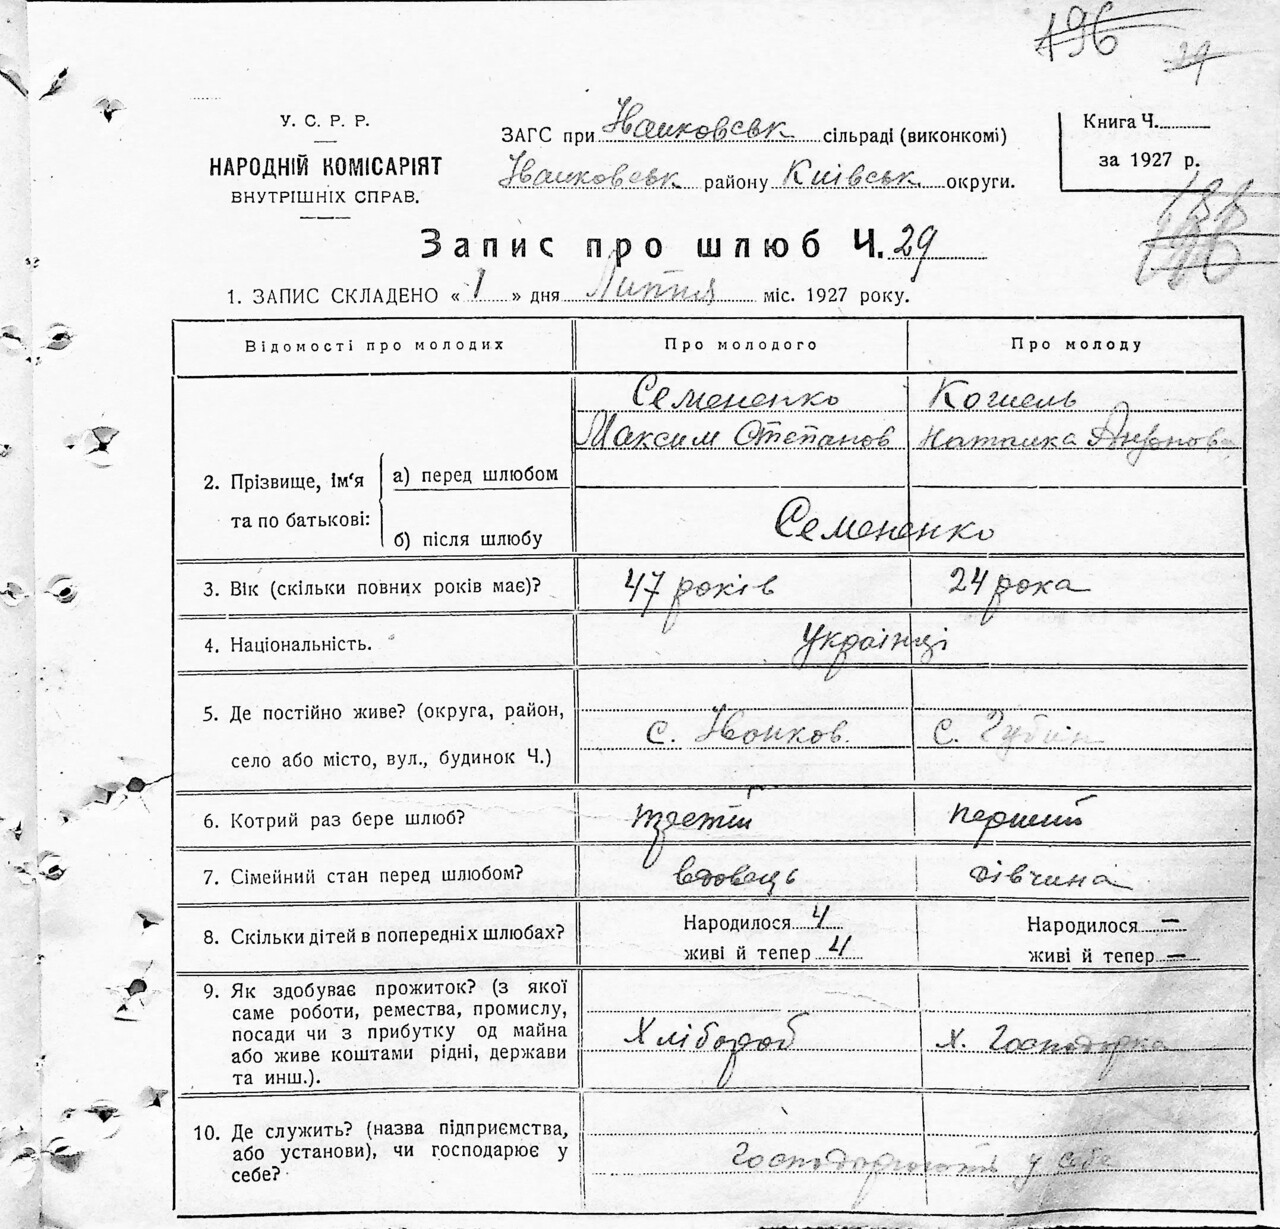 196
29
У. С. Р. Р.
НАРОДНІЙ КОМІСАРІЯТ
ВНУТРІШНІХ СПРАВ.
ЗАГС при Іванковськ сільраді (виконкомі)
Іванковськ району Київськ округи.
Книга Ч.
за 1927 р.
Запис про шлюб Ч. 29
1. ЗАПИС СКЛАДЕНО « 1 » дня Липня міс. 1927 року.
Відомості про молодих Про молодого Про молоду
Семененко Кошель
Максим Степанов Наталка
2. Прізвище, ім'я та по батькові:
а) перед шлюбом
б) після шлюбу Семененко
3. Вік (скільки повних років має)? 47 років 24 рока
4. Національність. Українці
5. Де постійно живе? (округа, район,
село або місто, вул., будинок Ч.) с. Іванков. с. Губин
6. Котрий раз бере шлюб? третій перший
7. Сімейний стан перед шлюбом? вдовець дівчина
8. Скільки дітей в попередніх шлюбах? Народилося 4 Народилося —
живі й тепер 4 живі й тепер —
9. Як здобуває прожиток? (з якої
саме роботи, ремества, промислу,
посади чи з прибутку од майна
або живе коштами рідні, держави
та инш.). Хлібороб Х. Господарка
10. Де служить? (назва підприємства,
або установи), чи господарює у
себе? Господарюють у себе